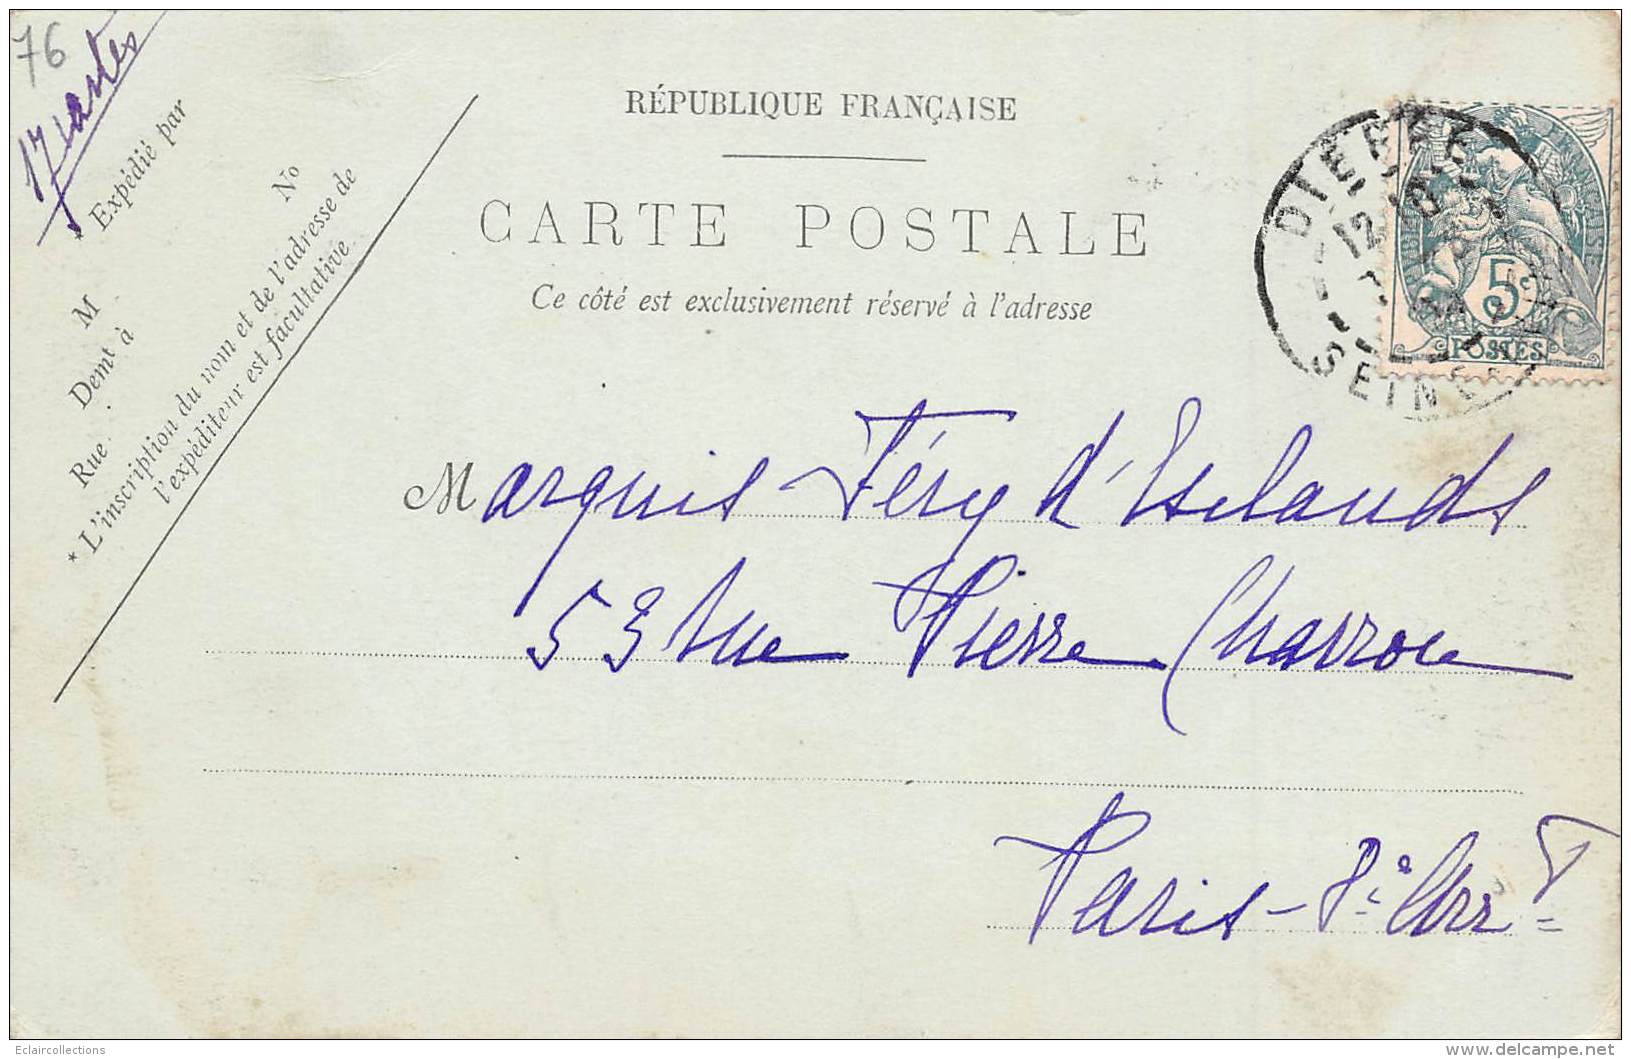 76
17 cartes
* Expédié par
M
No
Demt à
Rue
* L'inscription du nom et de l'adresse de
l'expéditeur est facultative
RÉPUBLIQUE FRANÇAISE
CARTE POSTALE
Ce côté est exclusivement réservé à l'adresse
DIEPPE
12
SEINE
FRANÇAISE
5c
POSTES
Marquis Féry d'Esclands
53 Rue Pierre Charron
Paris - 8e Arrt
Eclaircollections
delcampe.net